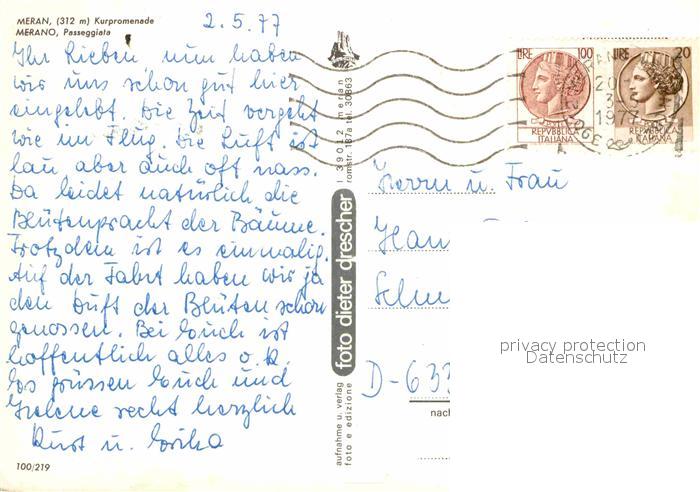 MERAN, (312 m) Kurpromenade
MERANO, Passeggiata
2.5.77
Ihr Lieben, nun haben
wir uns schon gut hier
eingelebt. Die Zeit vergeht
wie im Flug. Die Luft ist
lau, aber auch oft nass.
Da leidet natürlich die
Blütenpracht der Bäume.
Trotzdem ist es einmalig.
Auf der Fahrt haben wir ja
den Duft der Blüten schon
genossen. Bei Euch ist
hoffentlich alles o.k.
Es grüssen Euch und
Helene recht herzlich
Kurt u. Erika
100/219
I 39012 meran
romstr. 187a tel. 30863
foto dieter drescher
aufnahme u. verlag
foto e edizione
LIRE 100
REPVBBLICA
ITALIANA
LIRE 20
REPVBBLICA
ITALIANA
Herrn u. Frau
D-633
nach
privacy protection
Datenschutz